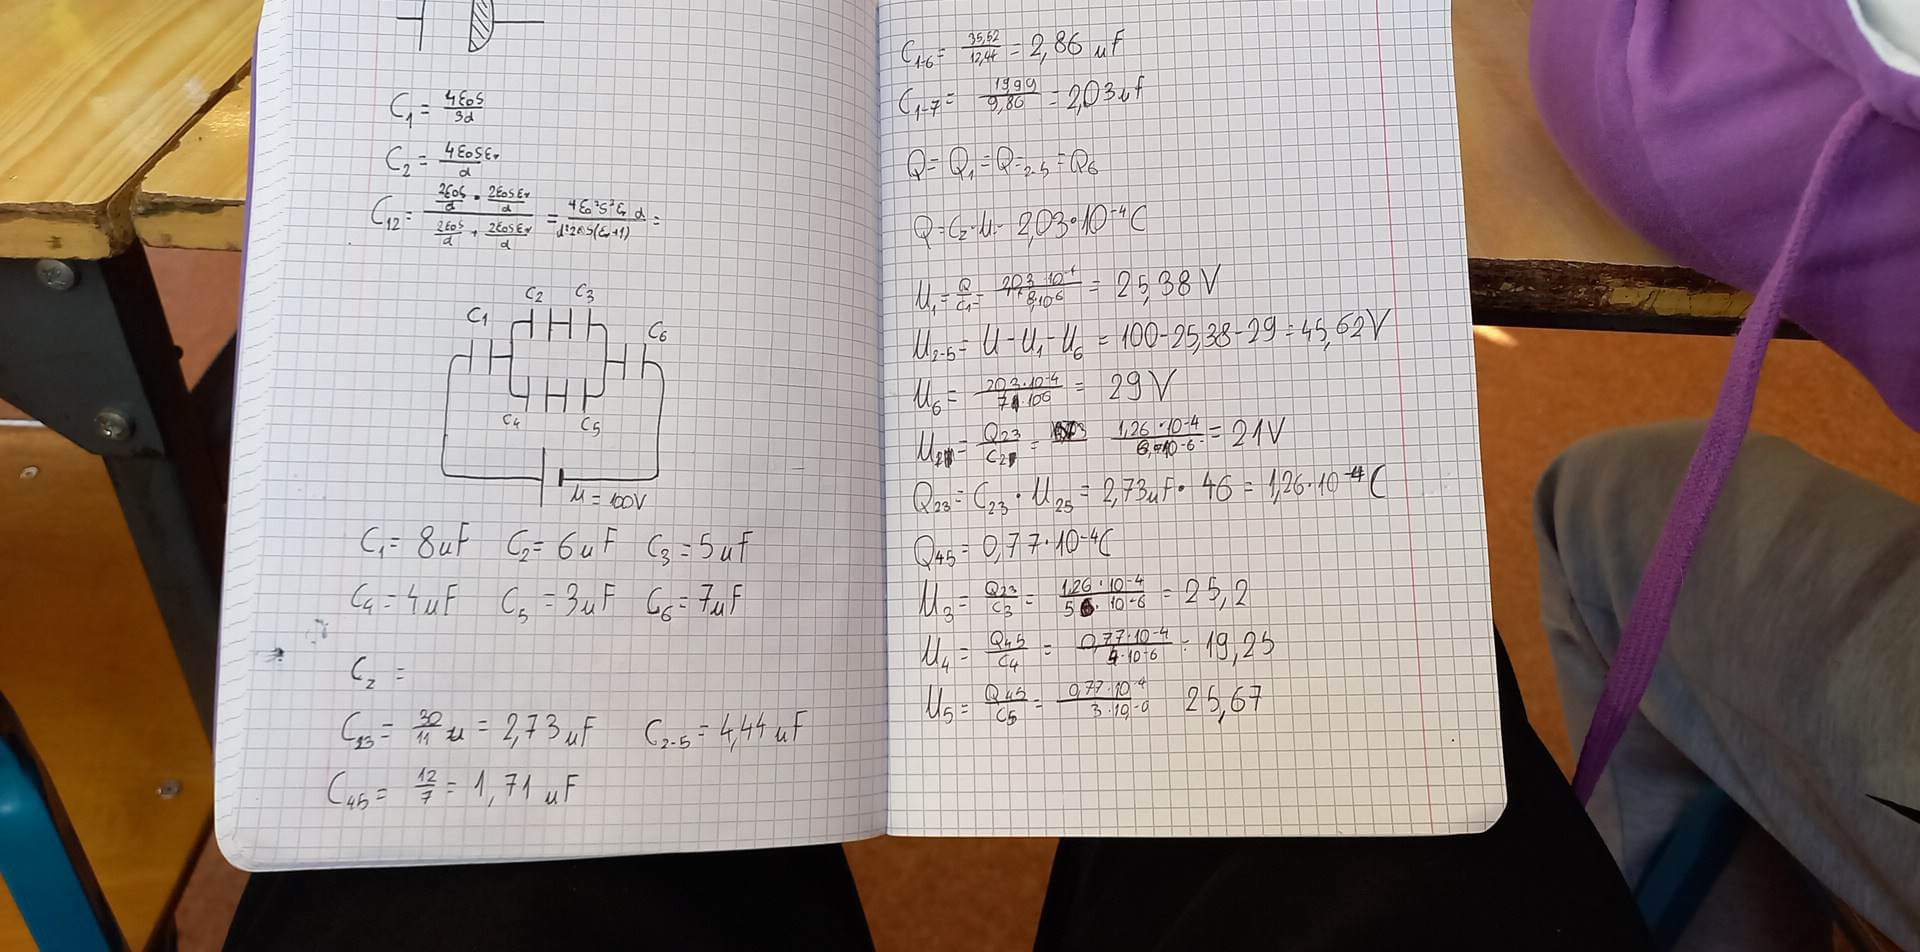 C₁ = 4ε₀S/3d
C₂ = 4ε₀Sεᵣ/d
C₁₂ = (2ε₀S/d · 2ε₀Sεᵣ/d)/(2ε₀S/d + 2ε₀Sεᵣ/d) = 4ε₀²S²εᵣ d/d²2ε₀S(εᵣ+1) =
C₂ C₃
C₁ C₆
C₄ C₅
U = 100V
C₁ = 8uF C₂ = 6uF C₃ = 5uF
C₄ = 4uF C₅ = 3uF C₆ = 7uF
C_z =
C₂₃ = 30/11 u = 2,73uF C₂₋₅ = 4,44uF
C₄₅ = 12/7 = 1,71uF
C₁₋₆ = 35,52/12,44 = 2,86uF
C₁₋₇ = 19,99/9,86 = 2,03uf
Q = Q₁ = Q₌₂₋₅ = Q₆
Q = C_z · U = 2,03·10⁻⁴C
U₁ = Q/C₁ = 8·10⁶ = 25,38V
U₂₋₅ = U - U₁ - U₆ = 100 - 25,38 - 29 = 45,62V
U₆ = 29V
U₂ = Q₂₃/C₂ = 1,26·10⁻⁴/6·10⁻⁶ = 21V
Q₂₃ = C₂₃ · U₂₅ = 2,73uF · 46 = 1,26·10⁻⁴C
Q₄₅ = 0,77·10⁻⁴C
U₃ = Q₂₃/C₃ = 1,26·10⁻⁴/5·10⁻⁶ = 25,2
U₄ = Q₄₅/C₄ = 0,77·10⁻⁴/4·10⁻⁶ = 19,25
U₅ = Q₄₅/C₅ = 0,77·10⁻⁴ 25,67